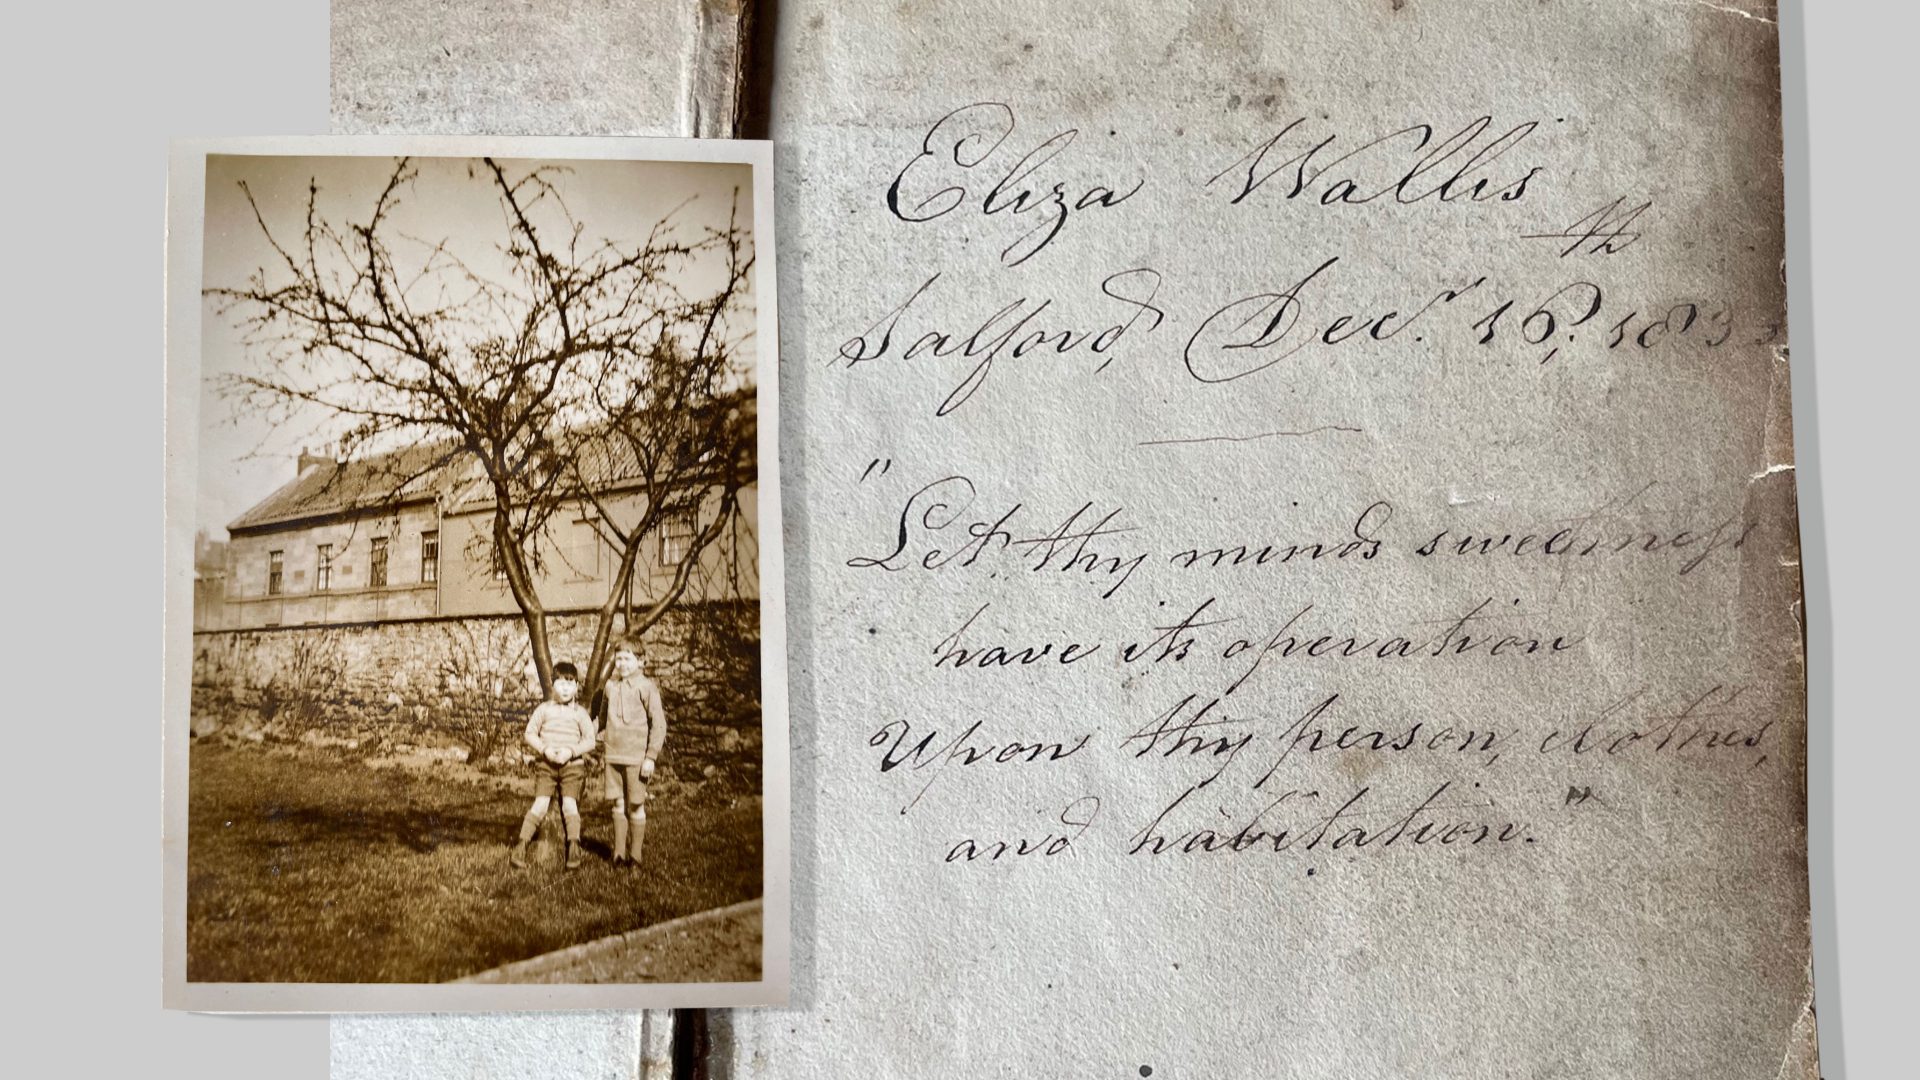 Eliza Wallis
Salford, Decr. 16th, 1833
"Let thy minds sweetneſs
have its operation
Upon thy person, clothes,
and habitation."